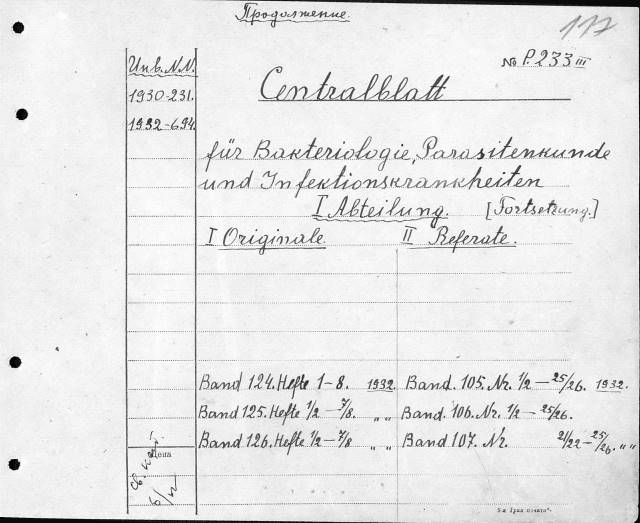 Продолжение.
117
№ P.233 III
Инв. N.N.
1930-231.
1932-694.
Centralblatt
für Bakteriologie, Parasitenkunde
und Infektionskrankheiten
I Abteilung. [Fortsetzung.]
I Originale. II Referate.
Band 124. Hefte 1-8. 1932. Band. 105. Nr. 1/2 — 25/26. 1932.
Band 125. Hefte 1/2 — 7/8. " " Band. 106. Nr. 1/2 — 25/26.
Band 126. Hefte 1/2 — 7/8 " " Band 107. Nr. 21/22 — 25/26. " "
Цена